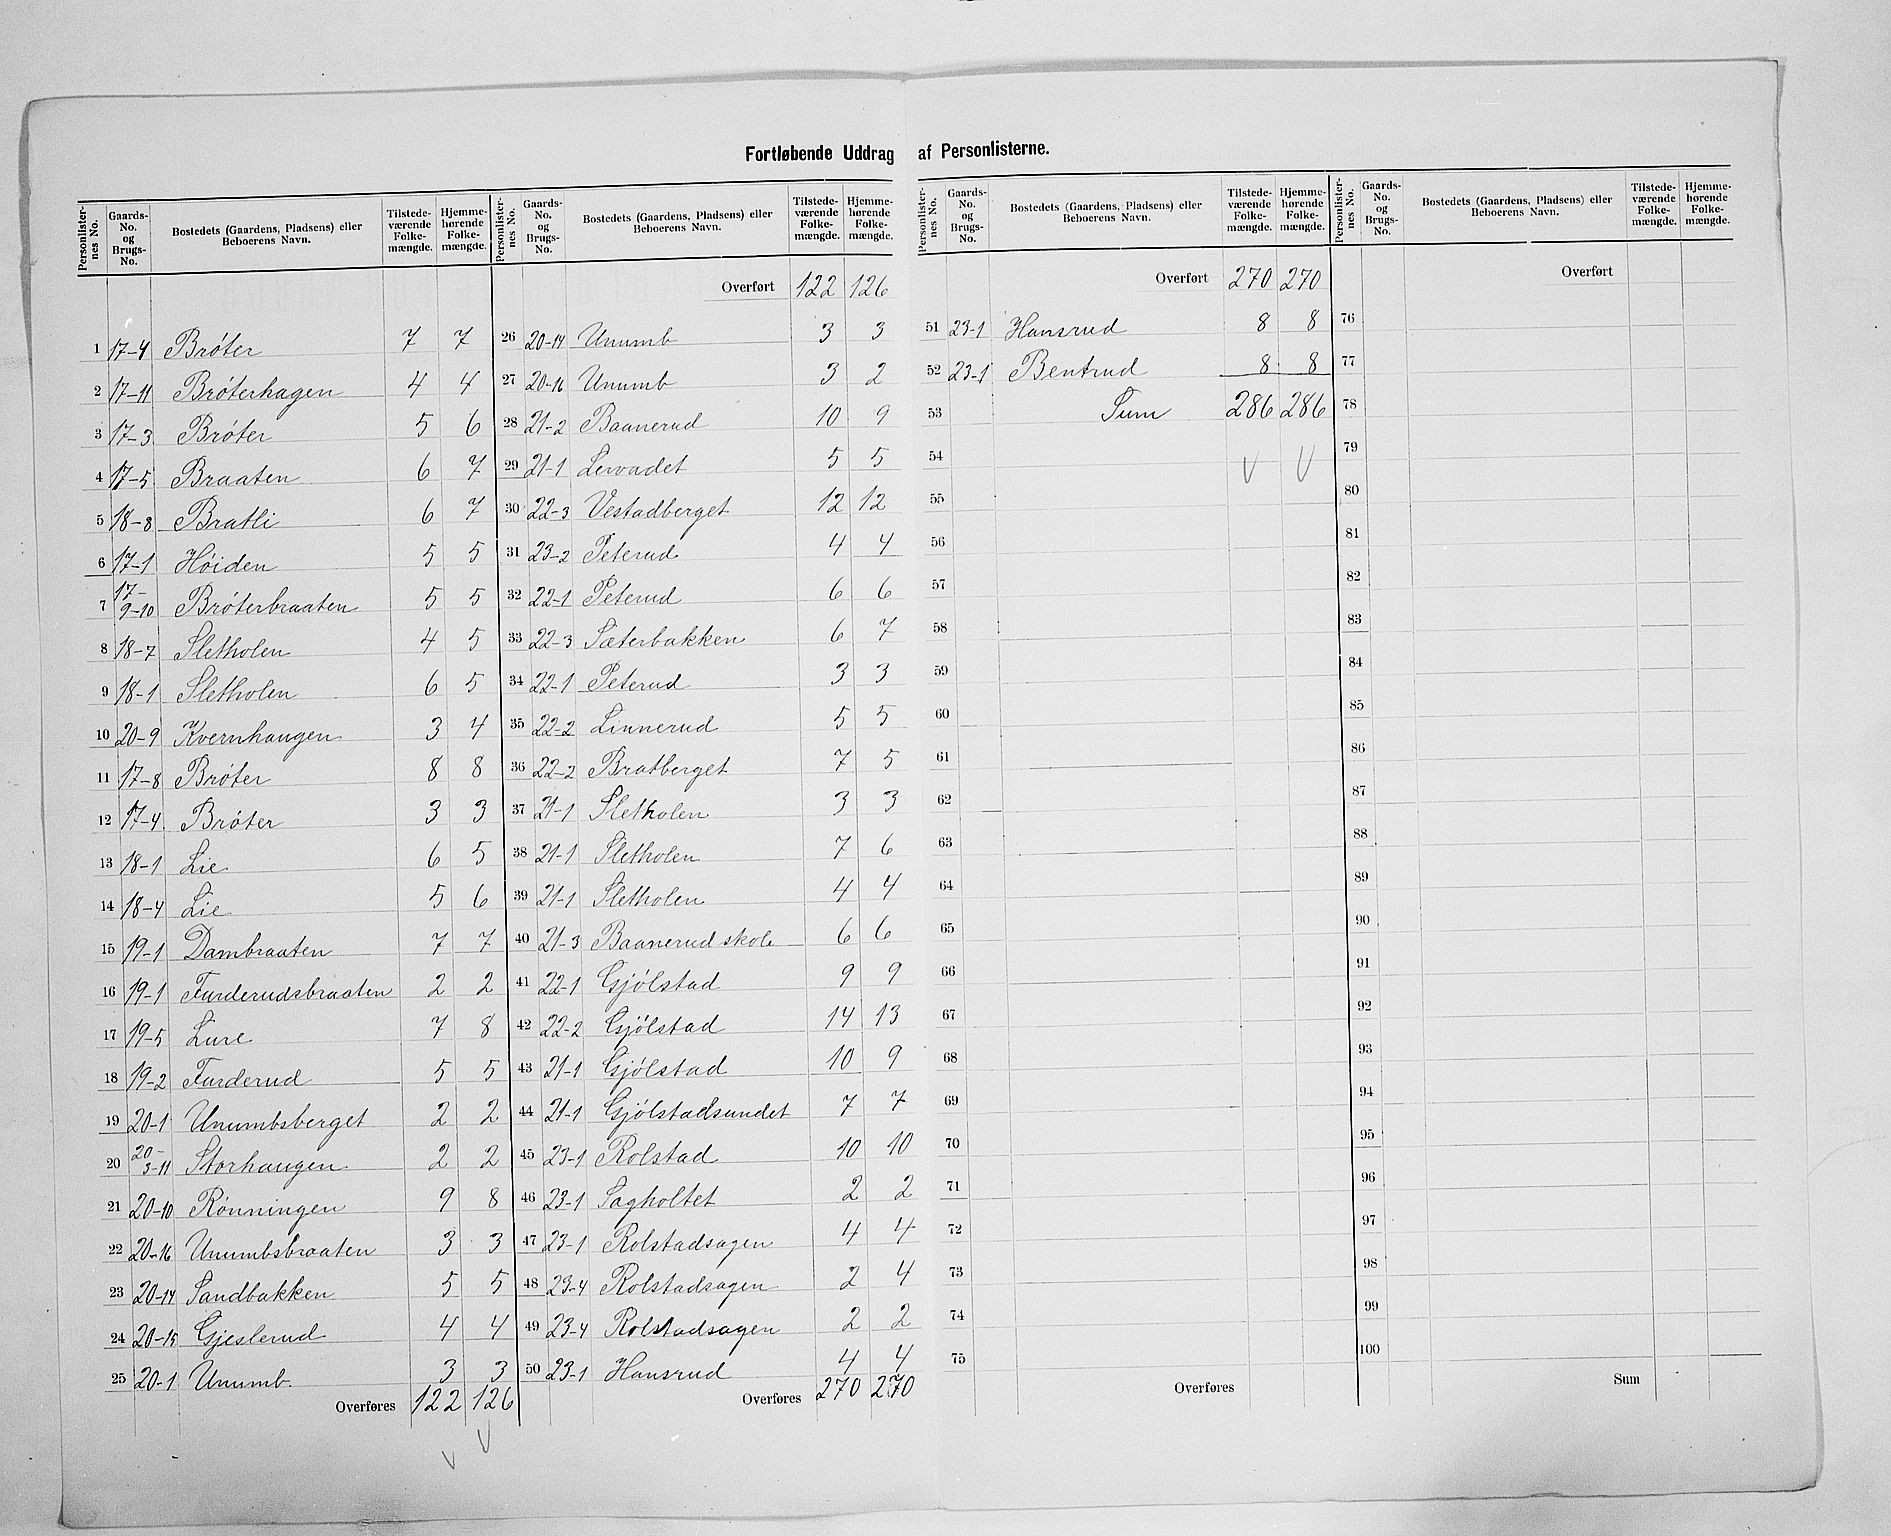 Fortløbende Uddrag af Personlisterne.
Personlister-nes No. | Gaards-No. og Brugs-No. | Bostedets (Gaardens, Pladsens) eller Beboerens Navn. | Tilstede-værende Folke-mængde. | Hjemme-hørende Folke-mængde.
1 17-4 Brøter 7 7
2 17-11 Brøterhagen 4 4
3 17-3 Brøter 5 6
4 17-5 Braaten 6 7
5 18-8 Bratli 6 7
6 17-1 Høiden 5 5
7 17-9-10 Brøterbraaten 5 5
8 18-7 Sletholen 4 5
9 18-1 Sletholen 6 5
10 20-9 Kvernhaugen 3 4
11 17-8 Brøter 8 8
12 17-4 Brøter 3 3
13 18-1 Lie 6 5
14 18-4 Lie 5 6
15 19-1 Dambraaten 7 7
16 19-1 Furderudsbraaten 2 2
17 19-5 Lure 7 8
18 19-2 Furderud 5 5
19 20-1 Unumbsberget 2 2
20 20-3-11 Storhaugen 2 2
21 20-10 Rønningen 9 8
22 20-16 Unumbsbraaten 3 3
23 20-14 Sandbakken 5 5
24 20-15 Gjeslerud 4 4
25 20-1 Unumb. 3 3
Overføres 122 126
Personlister-nes No. | Gaards-No. og Brugs-No. | Bostedets (Gaardens, Pladsens) eller Beboerens Navn. | Tilstede-værende Folke-mængde. | Hjemme-hørende Folke-mængde.
Overført 122 126
26 20-14 Unumb 3 3
27 20-16 Unumb 3 2
28 21-2 Baanerud 10 9
29 21-1 Levadet 5 5
30 22-3 Vestadberget 12 12
31 23-2 Peterud 4 4
32 22-1 Peterud 6 6
33 22-3 Sæterbakken 6 7
34 22-1 Peterud 3 3
35 22-2 Linnerud 5 5
36 22-2 Bratberget 7 5
37 21-1 Sletholen 3 3
38 21-1 Sletholen 7 6
39 21-1 Sletholen 4 4
40 21-3 Baanerud skole 6 6
41 22-1 Gjølstad 9 9
42 22-2 Gjølstad 14 13
43 21-1 Gjølstad 10 9
44 21-1 Gjølstadsundet 7 7
45 23-1 Rolstad 10 10
46 23-1 Sagholtet 2 2
47 23-1 Rolstadsagen 4 4
48 23-4 Rolstadsagen 2 4
49 23-4 Rolstadsagen 2 2
50 23-1 Hansrud 4 4
Overføres 270 270
Personlister-nes No. | Gaards-No. og Brugs-No. | Bostedets (Gaardens, Pladsens) eller Beboerens Navn. | Tilstede-værende Folke-mængde. | Hjemme-hørende Folke-mængde.
Overført 270 270
51 23-1 Hansrud 8 8
52 23-1 Bentrud 8 8
53 Sum 286 286
54
55
56
57
58
59
60
61
62
63
64
65
66
67
68
69
70
71
72
73
74
75
Overføres
Personlister-nes No. | Gaards-No. og Brugs-No. | Bostedets (Gaardens, Pladsens) eller Beboerens Navn. | Tilstede-værende Folke-mængde. | Hjemme-hørende Folke-mængde.
Overført
76
77
78
79
80
81
82
83
84
85
86
87
88
89
90
91
92
93
94
95
96
97
98
99
100
Sum